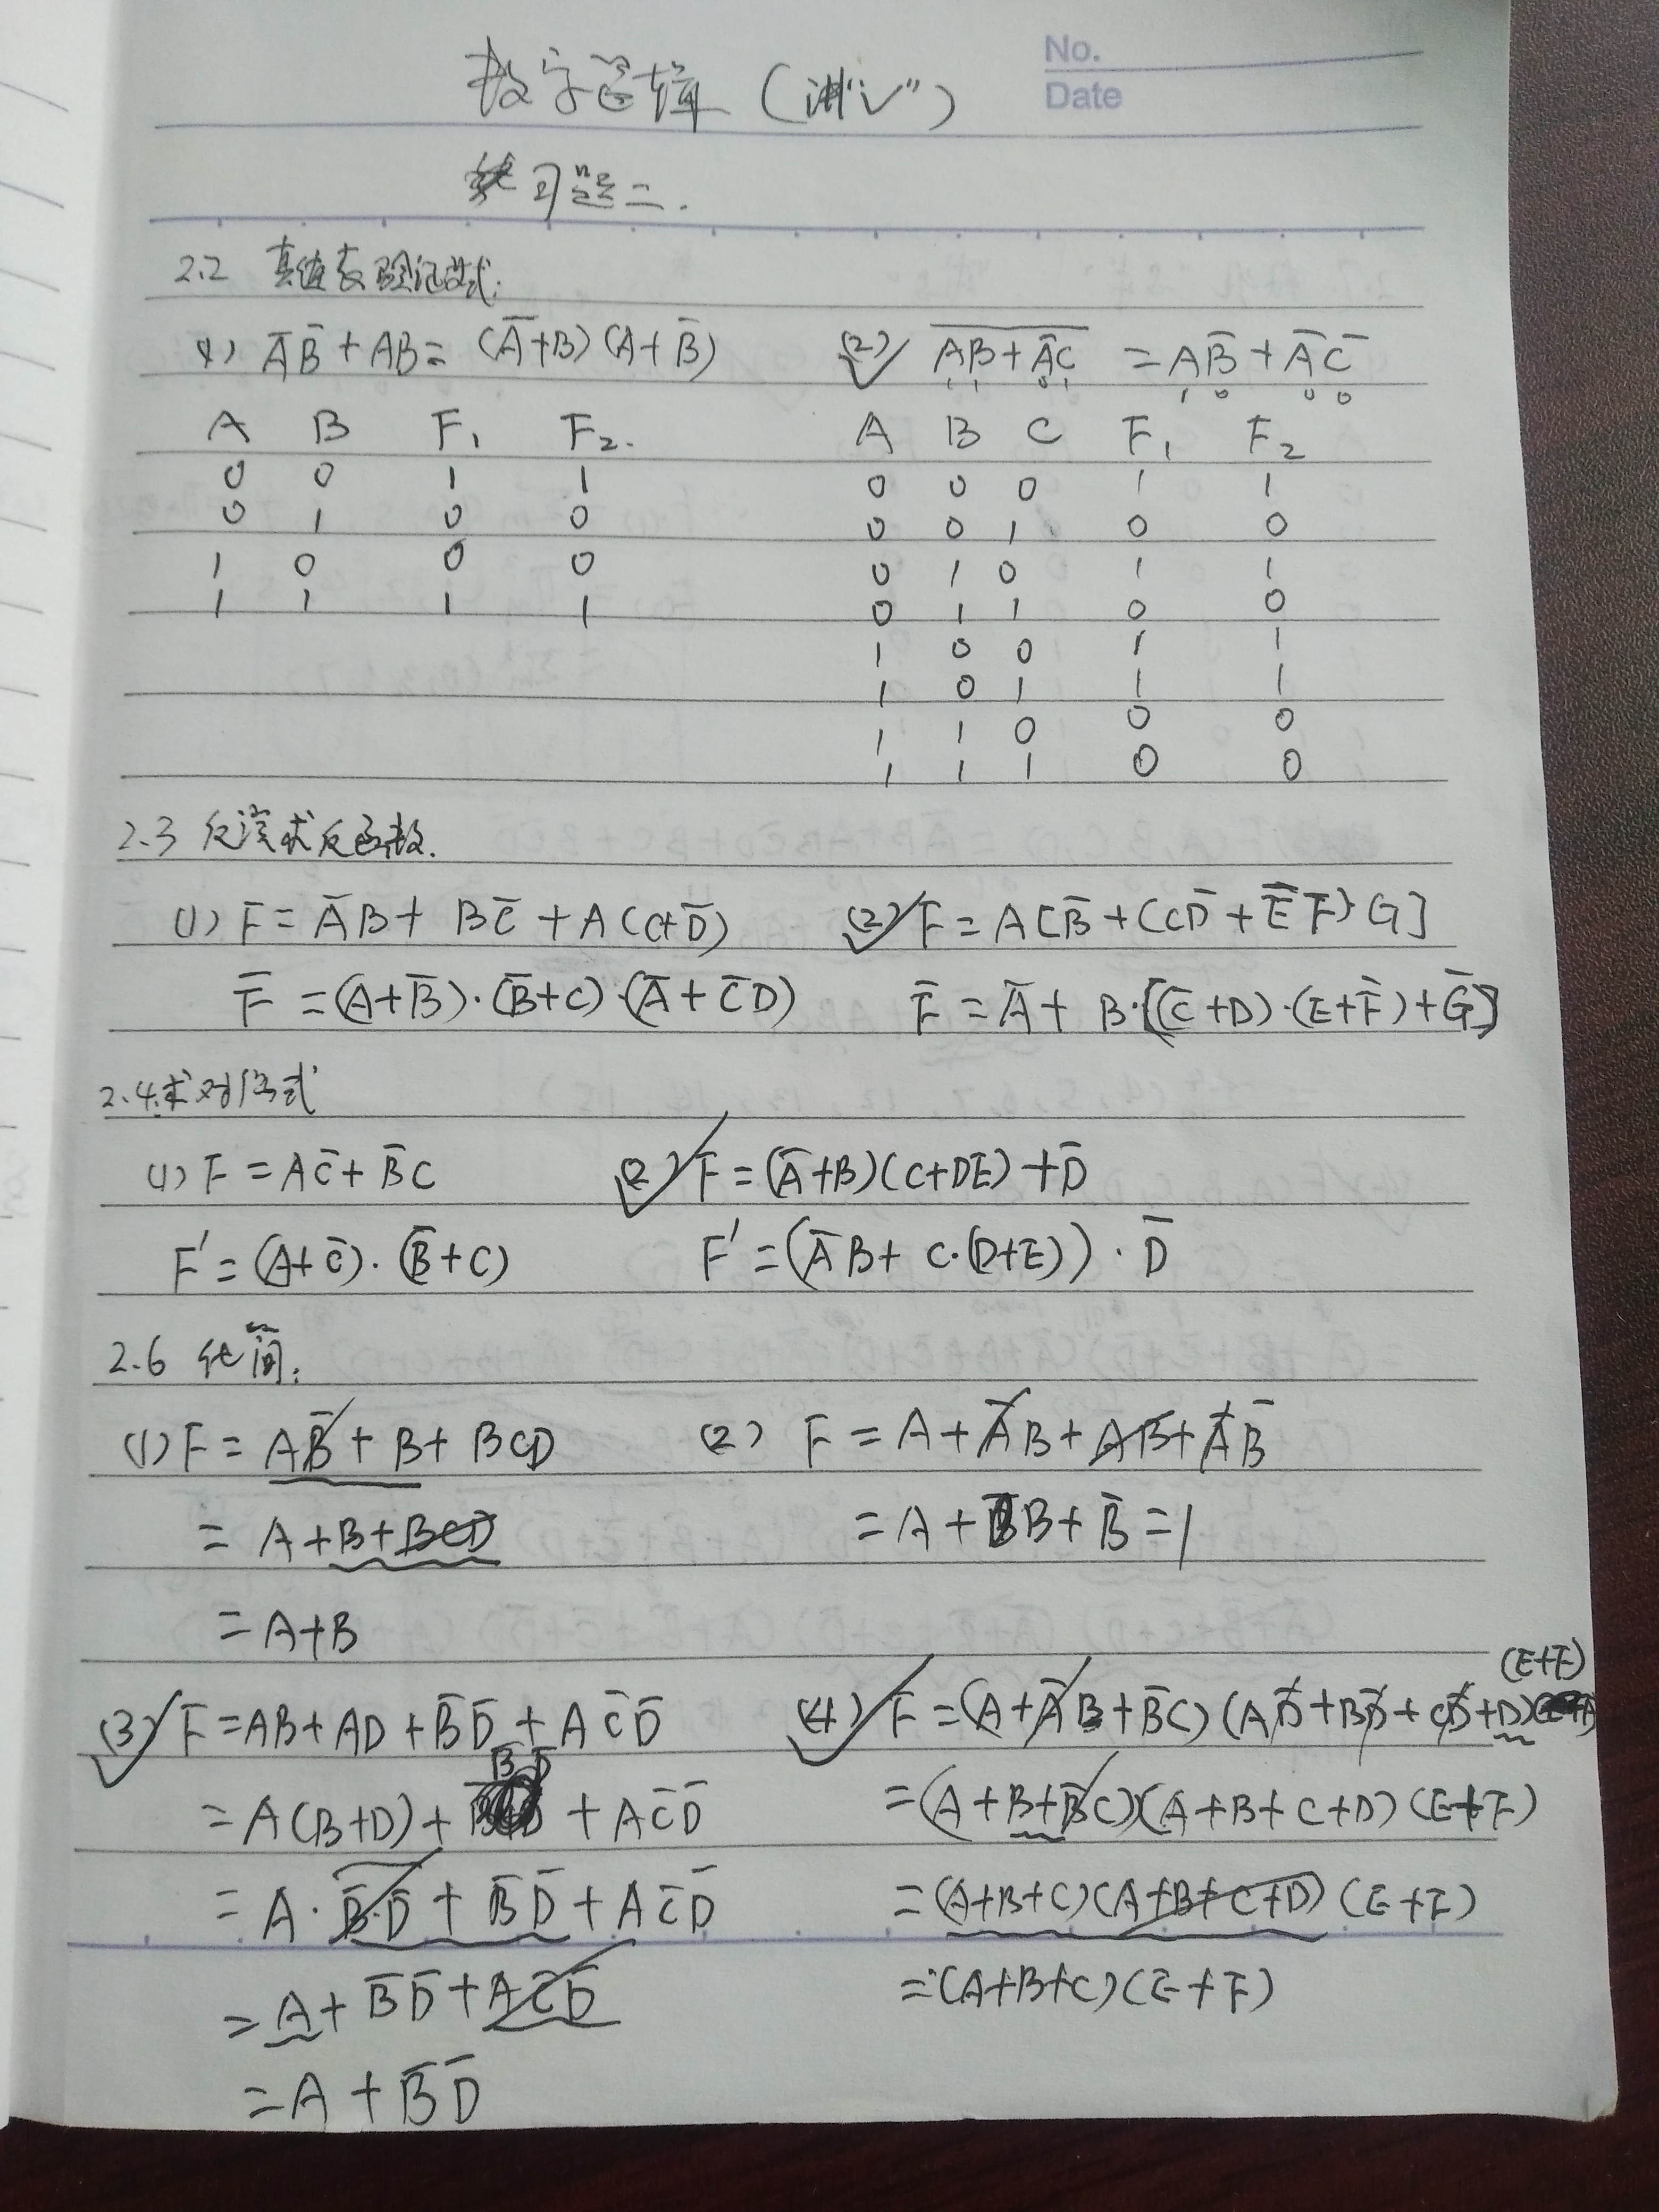 No.
Date
数字逻辑（浏“√”）
习题二.
2.2 真值表验证公式:
(1) A̅B̅ + AB = (A̅+B)(A+B̅)
(2) \overline{AB + A̅C} = AB̅ + A̅C̅
1 1 0 1 1 0 0 0
A B F₁ F₂.
A B C F₁ F₂
0 0 1 1
0 1 0 0
1 0 0 0
1 1 1 1
0 0 0 1 1
0 0 1 0 0
0 1 0 1 1
0 1 1 0 0
1 0 0 1 1
1 0 1 1 1
1 1 0 0 0
1 1 1 0 0
2.3 反演求反函数.
(1) F = A̅B + BC̅ + A(C+D̅)
F̅ = (A+B̅)·(B̅+C)·(A̅+C̅D)
(2) F = A[B̅ + (CD̅ + E̅F)G]
F̅ = A̅ + B·[(C̅+D)·(E+F̅)+G̅]
2.4 求对偶式
(1) F = AC̅ + B̅C
F' = (A+C̅)·(B̅+C)
(2) F = (A̅+B)(C+DE)+D̅
F' = (A̅B + C·(D+E))·D̅
2.6 化简:
(1) F = AB̅ + B + BCD
= A+B+BCD
= A+B
(2) F = A + A̅B + AB + A̅B̅
= A + B + B̅ = 1
(3) F = AB + AD + B̅D̅ + AC̅D̅
= A(B+D) + B̅D̅ + AC̅D̅
= A·\overline{B̅·D̅} + B̅D̅ + AC̅D̅
= A + B̅D̅ + AC̅D̅
= A + B̅D̅
(4) F = (A+A̅B+B̅C)(AD̅+BD̅+CD̅+D)(E+F)
= (A+B+B̅C)(A+B+C+D)(E+F)
= (A+B+C)(A+B+C+D)(E+F)
= (A+B+C)(E+F)